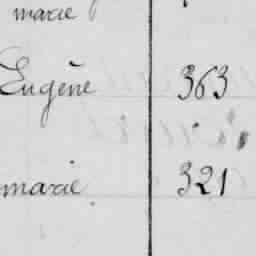 marie
Eugène 363
marie 321